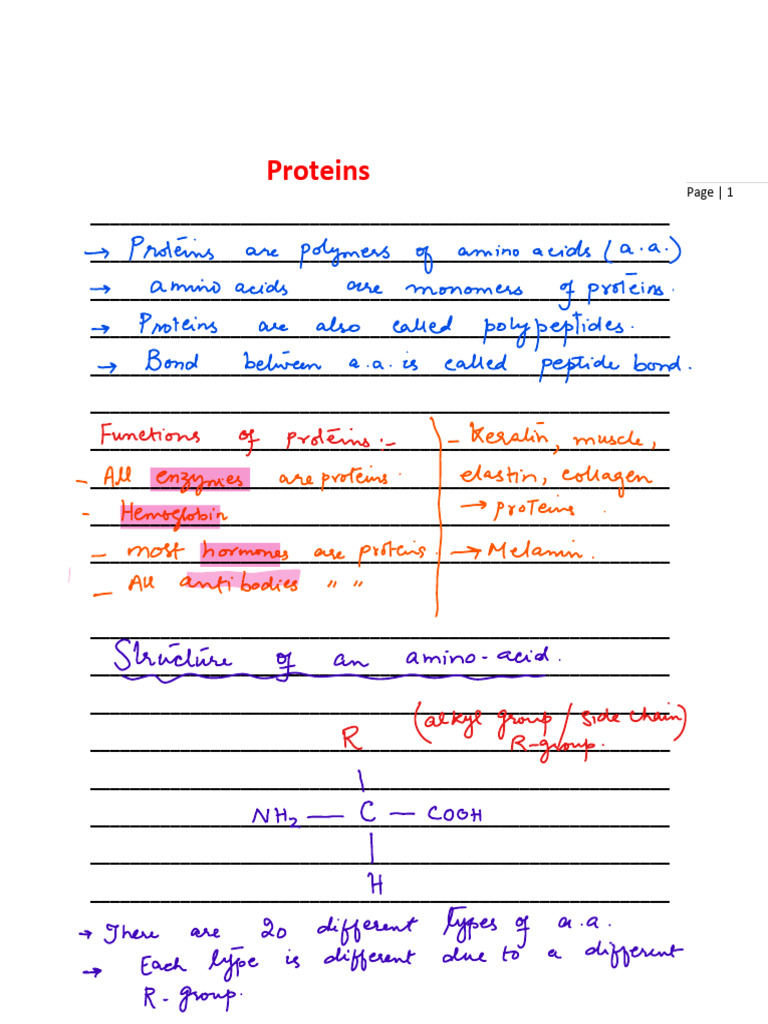 Proteins
Page | 1
→ Proteins are polymers of amino acids (a.a.)
→ amino acids are monomers of proteins.
→ Proteins are also called polypeptides.
→ Bond between a.a. is called peptide bond.
Functions of proteins:-
- All enzymes are proteins.
- Hemoglobin
- most hormones are proteins.
- All antibodies " "
- Keratin, muscle,
elastin, collagen
→ proteins.
→ Melanin.
Structure of an amino-acid.
(alkyl group / side chain)
R-group.
R
NH₂ — C — COOH
H
→ There are 20 different types of a.a.
→ Each type is different due to a different
R-group.